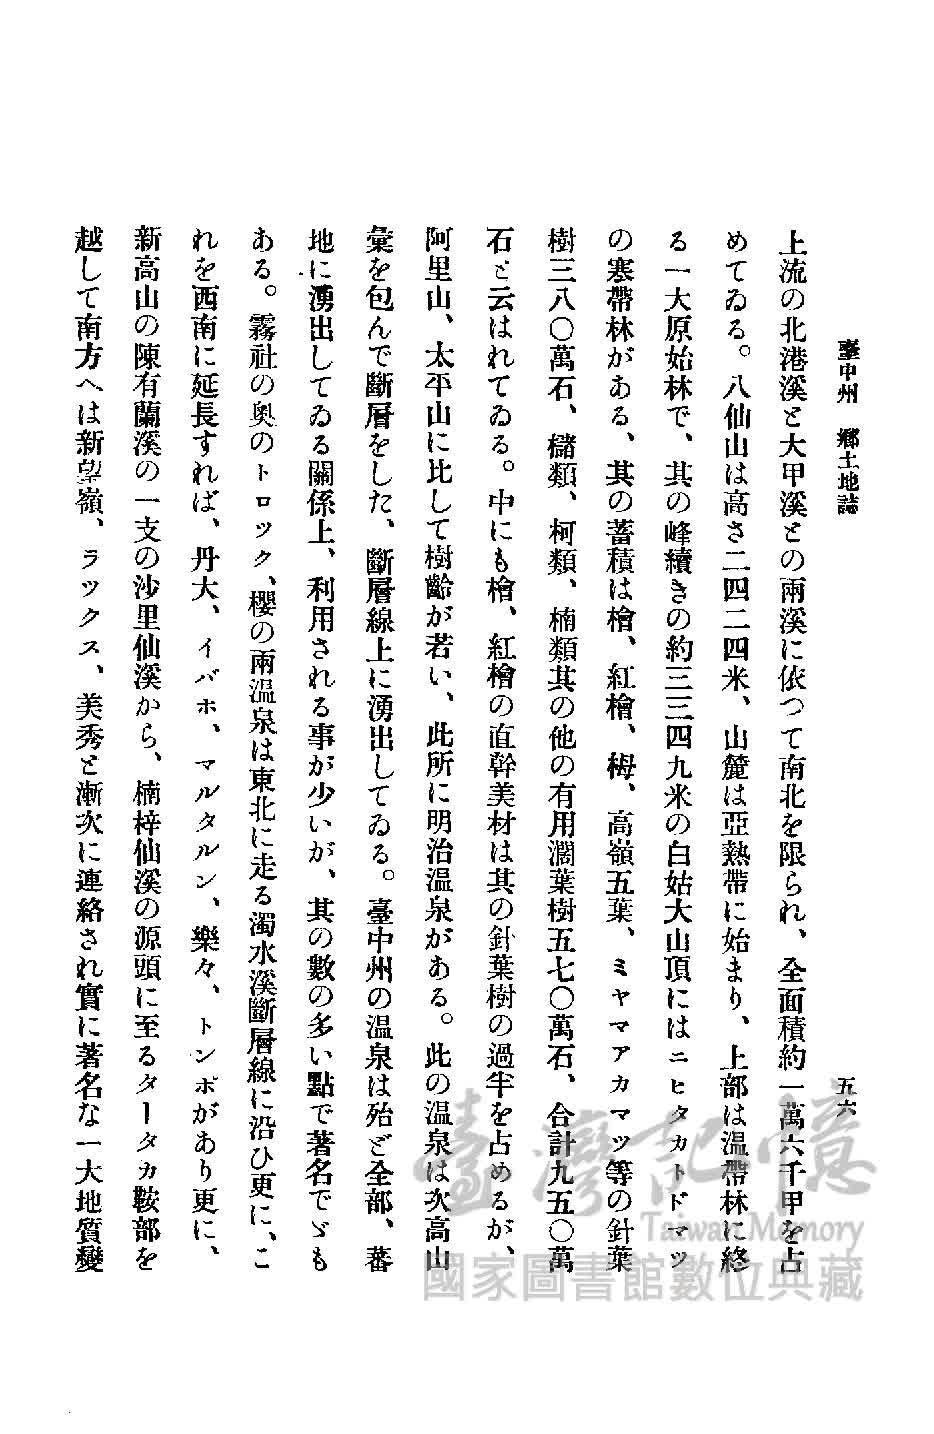 臺中州　鄕土地誌
五六
上流の北港溪と大甲溪との兩溪に依つて南北を限られ、全面積約一萬六千甲を占
めてゐる。八仙山は高さ二四二四米、山麓は亞熱帶に始まり、上部は溫帶林に終
る一大原始林で、其の峰續きの約三三四九米の白姑大山頂にはニヒタカトドマツ
の寒帶林がある、其の蓄積は檜、紅檜、栂、高嶺五葉、ミヤマアカマツ等の針葉
樹三八〇萬石、櫧類、柯類、楠類其の他の有用濶葉樹五七〇萬石、合計九五〇萬
石と云はれてゐる。中にも檜、紅檜の直幹美材は其の針葉樹の過半を占めるが、
阿里山、太平山に比して樹齡が若い、此所に明治溫泉がある。此の溫泉は次高山
彙を包んで斷層をした、斷層線上に湧出してゐる。臺中州の溫泉は殆ど全部、蕃
地に湧出してゐる關係上、利用される事が少いが、其の數の多い點で著名でゞも
ある。霧社の奧のトロック、櫻の兩溫泉は東北に走る濁水溪斷層線に沿ひ更に、こ
れを西南に延長すれば、丹大、イバホ、マルタルン、樂々、トンボがあり更に、
新高山の陳有蘭溪の一支の沙里仙溪から、楠梓仙溪の源頭に至るタータカ鞍部を
越して南方へは新望嶺、ラックス、美秀と漸次に連絡され實に著名な一大地質變
臺灣記憶
Taiwan Memory
國家圖書館數位典藏